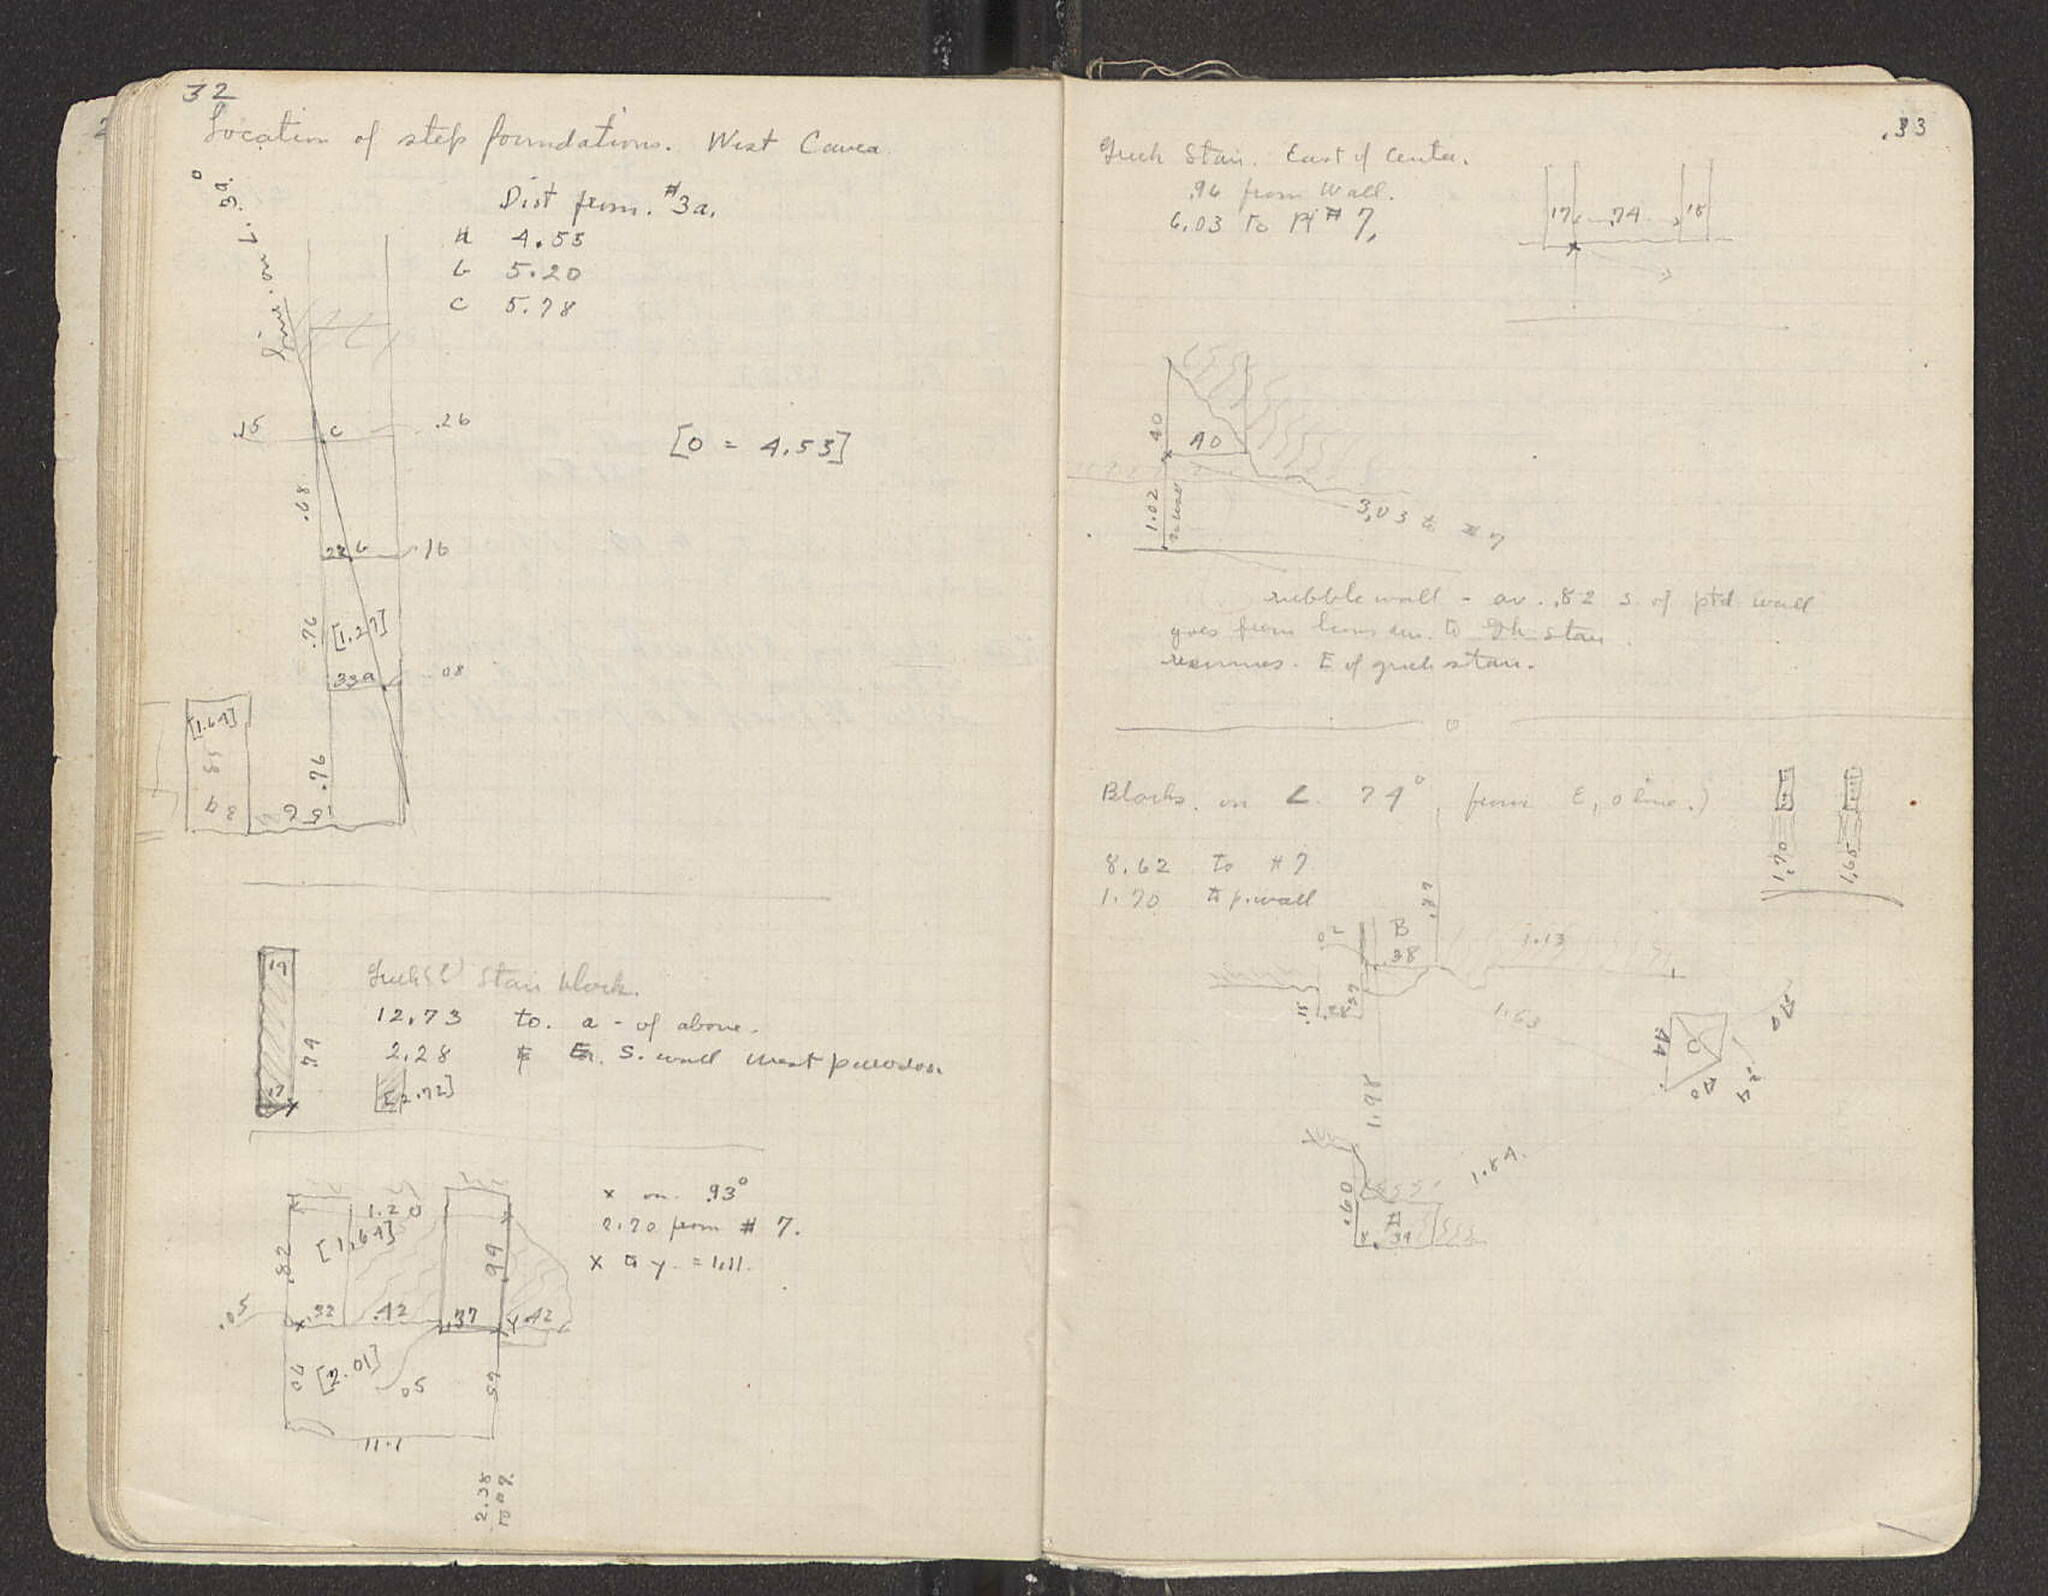 32
Location of step foundations. West Cavea
Dist from. #3a.
a 4.55
b 5.20
c 5.78
Line on L. 92°
.15
c
.26
[0 = 4.53]
.68
22 b
.16
.76
[1.27]
33 a
.08
[1.64]
.76
.56
19
Greek(?) Stair block.
12.73 to. a - of above.
.79
2.28 Gr. S. wall West parodos.
17
[2.72]
x on 93°
1.20
2.70 from # 7.
[1.64]
.82
.99
x to y. = 1.11.
.05
x .32
.42
.37
y .42
70
[2.01]
05
65
11.1
2.38
to #7.
33
Greek Stair. East of Center.
.96 from Wall.
6.03 to Pt # 7,
17
.74
18
40
40
1.02
to wall
3.03 to #7
rubble wall - av. .82 s. of ptd wall
goes from to Gk stair.
resumes. E of greek stair.
Blocks. on L. 74°, from E, 0 line.)
1.70
1.65
8.62 to #7
1.70 to p. wall
.87
B
.38
1.13
.28
.27
1.63
.44
C
1.98
1.84.
.60
A
.39